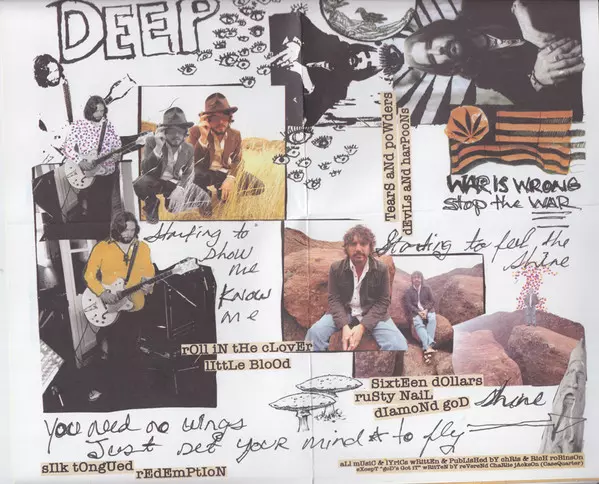 DEEP
TearS aNd poWders
dEviLs aNd harPooNs
WAR IS WRONG
Stop the WAR
Starting to
show
me
KNOW
me
Starting to feel the
shine
rOll iN tHe cLovEr
lIttLe BloOd
SixtEen dOllars
ruSty NaiL
dIamoNd goD
shine
you need no wings
Just set your mind to fly
sIlk tOngUed
rEdEmPtIoN
aLl mUsiC & lYricS wRittEn & PublisHed bY chRis & RicH roBinsOn
eXcepT "goD's Got iT" wRitTeN bY reVereNd ChaRlie jAcksOn (CaseQuarter)